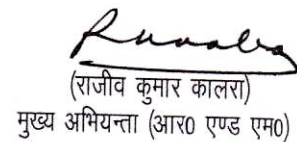 (राजीव कुमार कालरा)
मुख्य अभियन्ता (आर० एण्ड एम०)